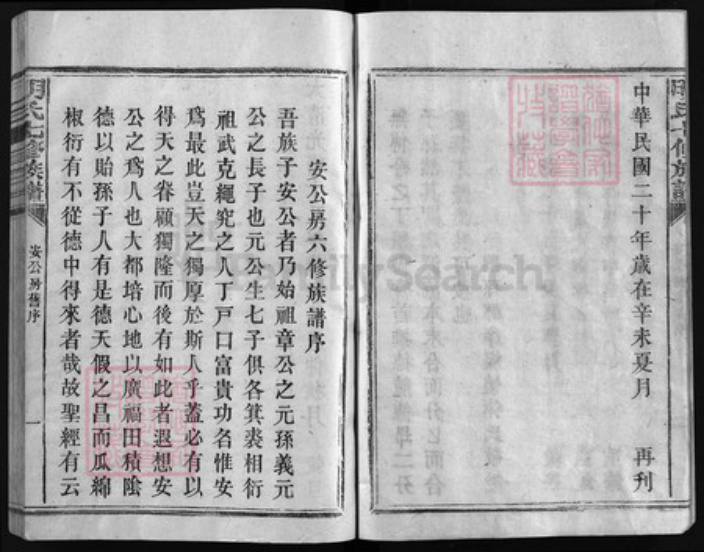 中華民國二十年歲在辛未夏月　再刊
安公房六修族譜序
吾族子安公者乃始祖章公之元孫義元
公之長子也元公生七子俱各箕裘相衍
祖武克繩究之人丁戸口富貴功名惟安
爲最此豈天之獨厚於斯人乎蓋必有以
得天之眷顧獨隆而後有如此者遐想安
公之爲人也大都培心地以廣福田積陰
德以貽孫子人有是德天假之昌而瓜綿
椒衍有不從德中得來者哉故聖經有云
氏七修族譜
安公房舊序
一
FamilySearch